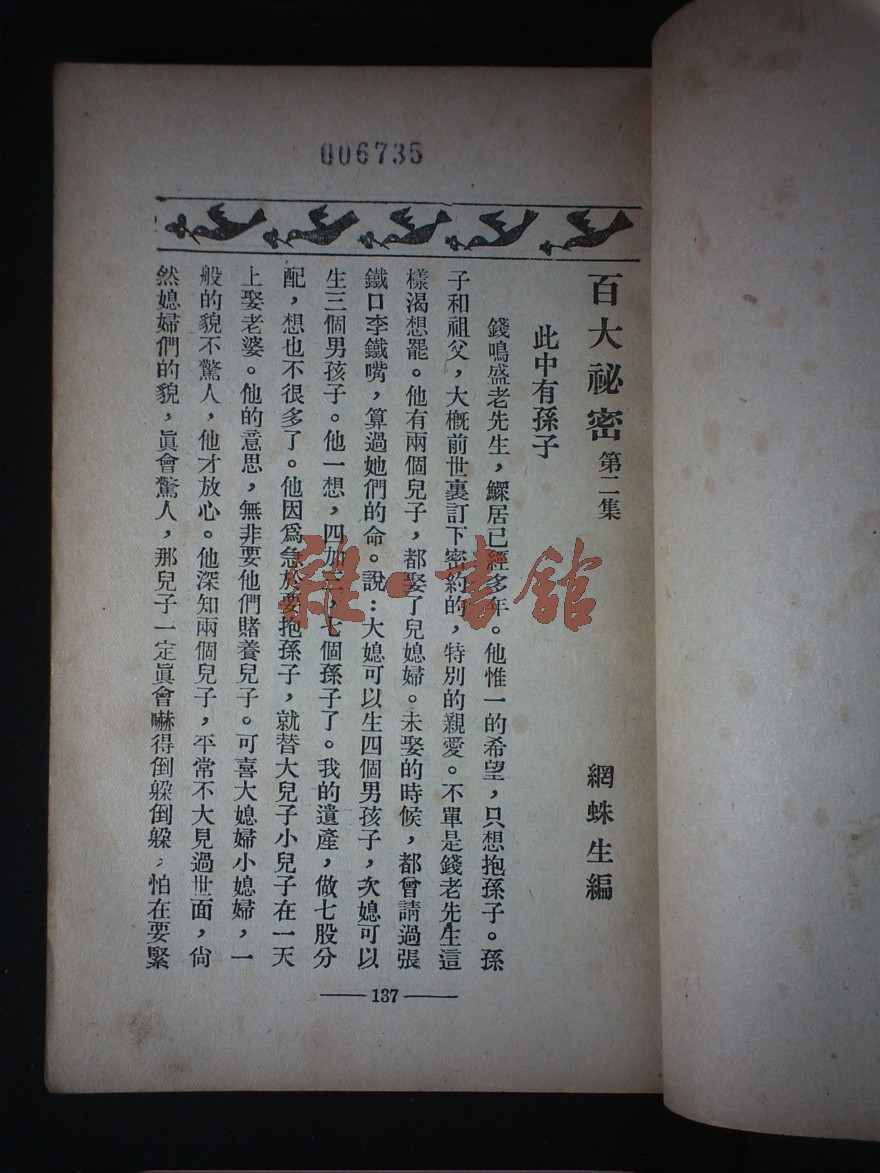 006735
百大祕密 第二集 網蛛生編
此中有孫子
錢鳴盛老先生，鰥居已經多年。他惟一的希望，只想抱孫子。孫
子和祖父，大概前世裏訂下密約的，特別的親愛。不單是錢老先生這
樣渴想罷。他有兩個兒子，都娶了兒媳婦。未娶的時候，都曾請過張
鐵口李鐵嘴，算過她們的命。說：大媳可以生四個男孩子，次媳可以
生三個男孩子。他一想，四加三，七個孫子了。我的遺產，做七股分
配，想也不很多了。他因爲急於要抱孫子，就替大兒子小兒子在一天
上娶老婆。他的意思，無非要他們賭養兒子。可喜大媳婦小媳婦，一
般的貌不驚人，他才放心。他深知兩個兒子，平常不大見過世面，尙
然媳婦們的貌，眞會驚人，那兒子一定眞會嚇得倒躱倒躱，怕在要緊
137
雜·書館